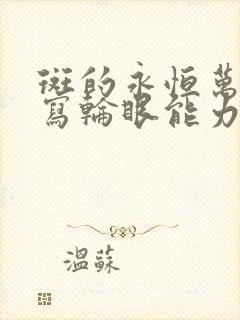 斑的永恒萬
寫輪眼能力
溫蘇